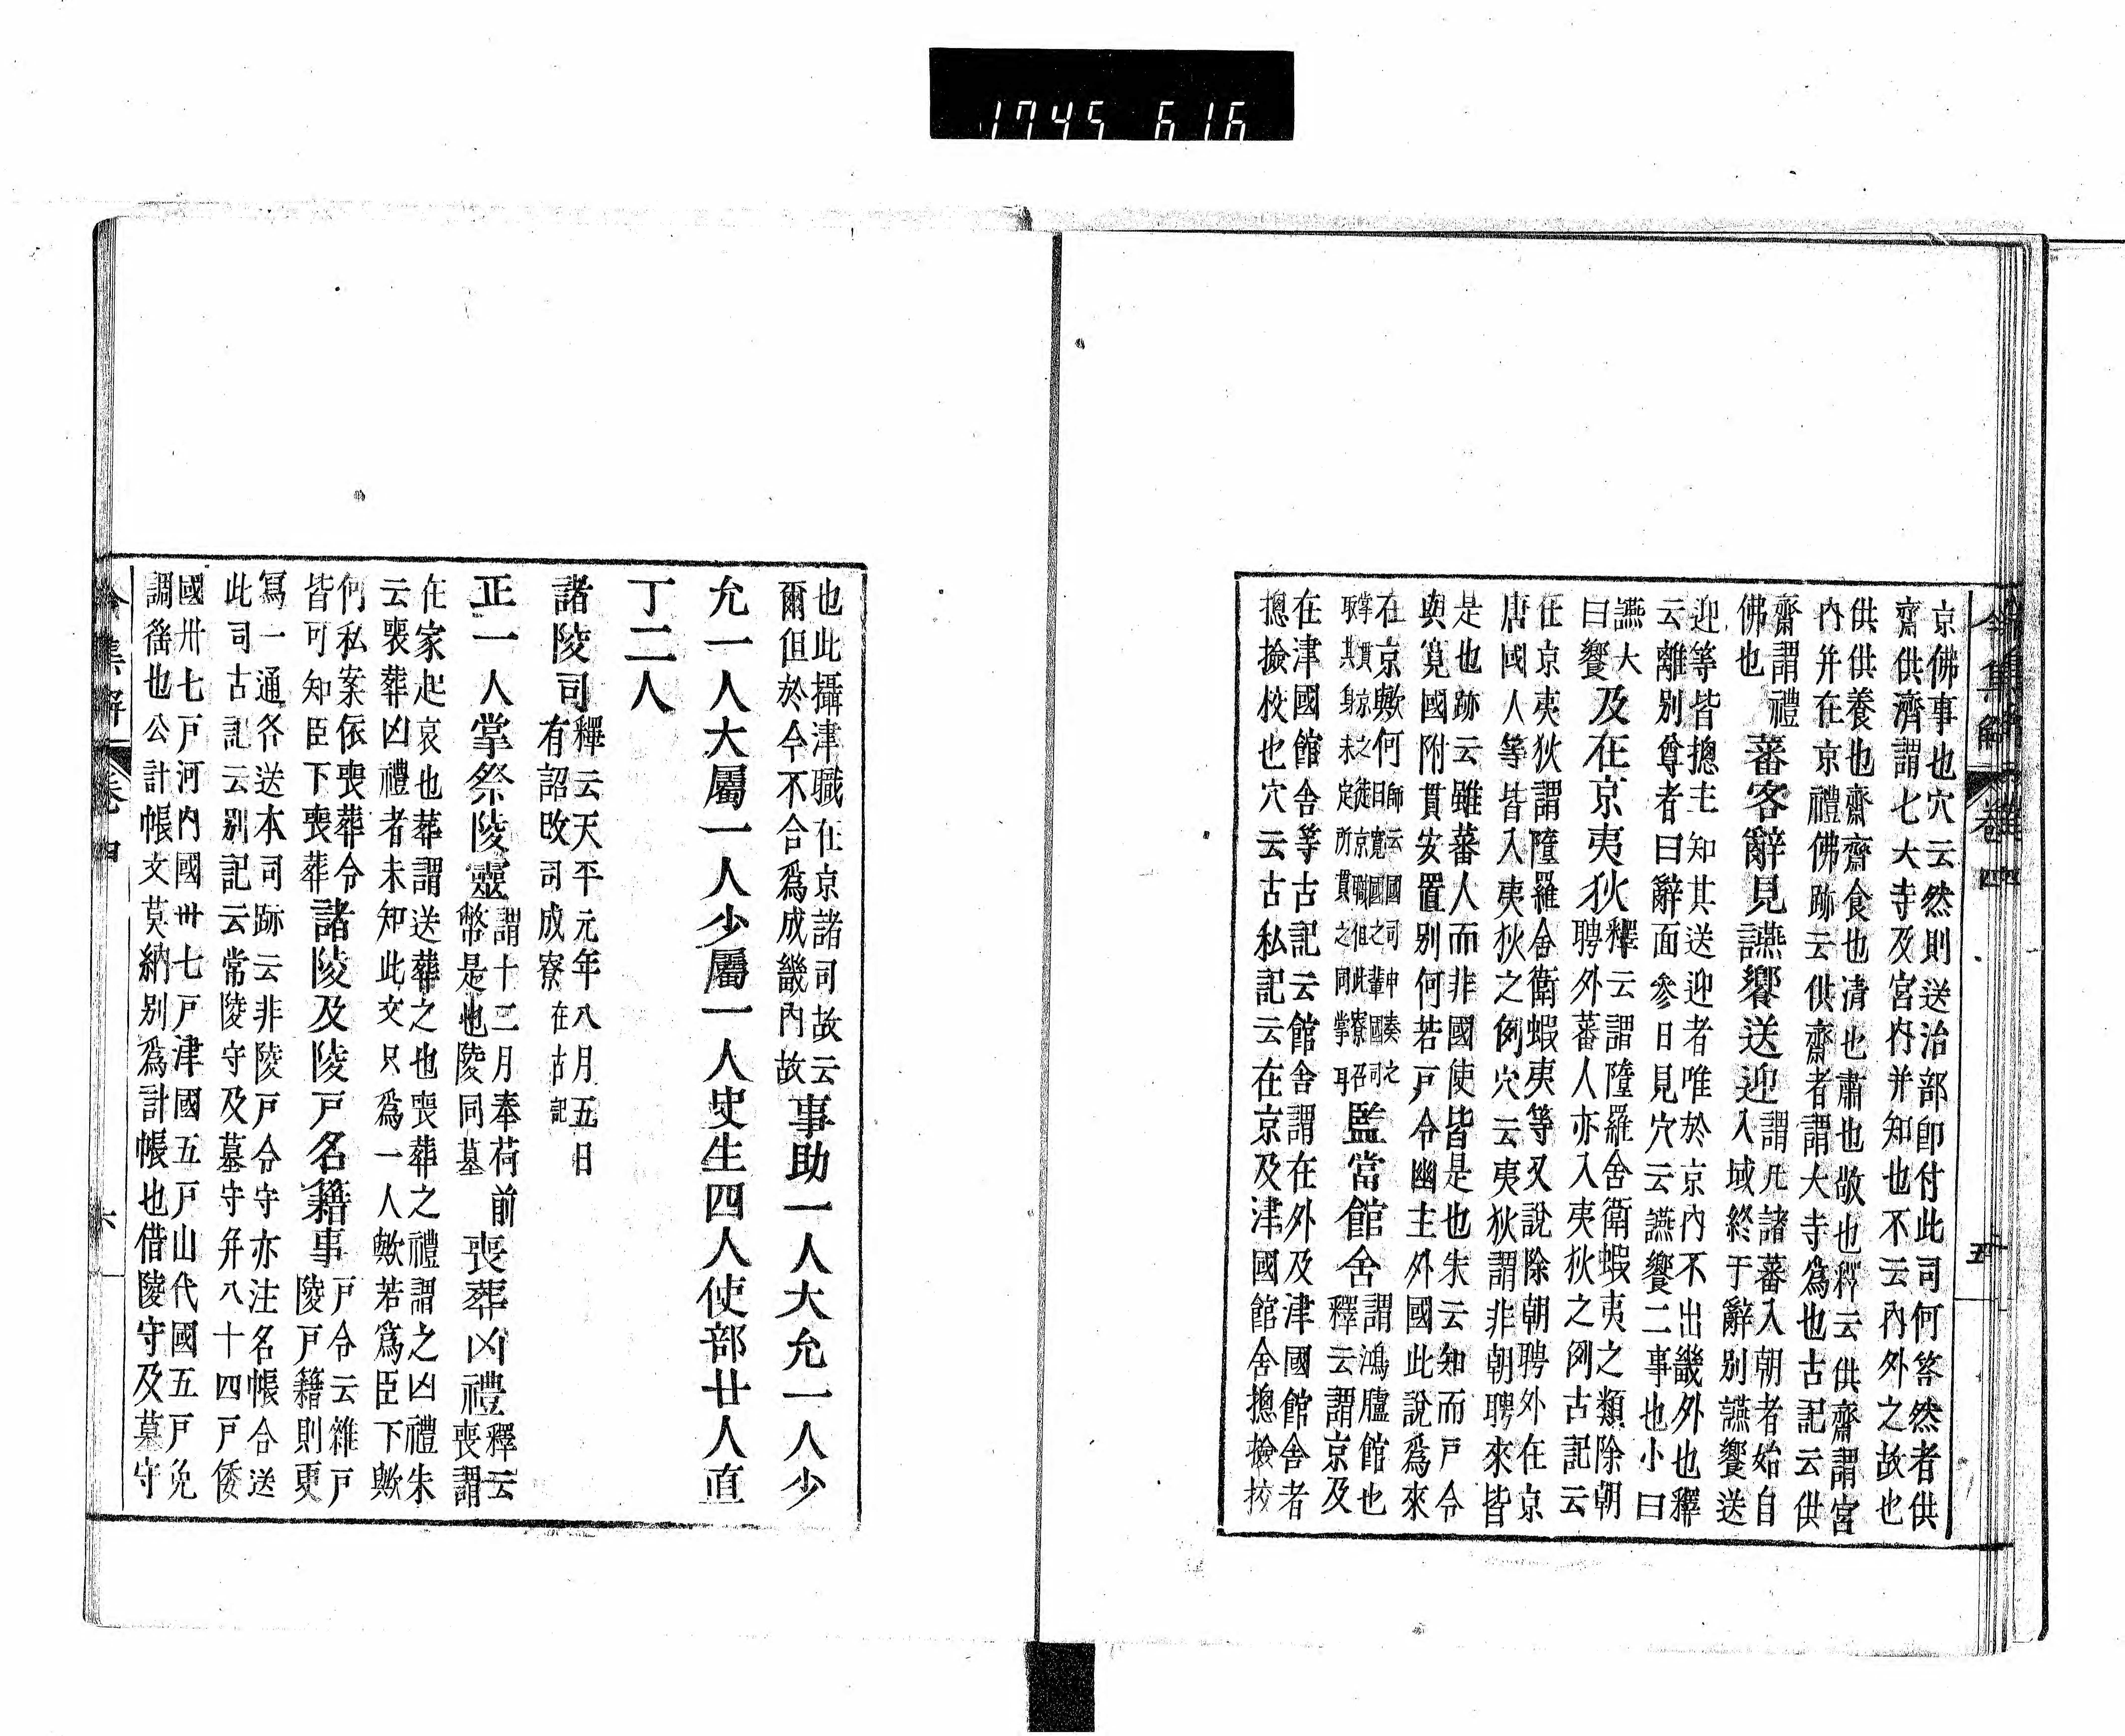 1745 616
令集解 卷四 五
京佛事也穴云然則送治部卽付此司何答然者供
齋供濟謂七大寺及宮内并知也不云内外之故也
供供養也齋齋食也清也肅也敬也釋云供齋謂宮
内并在京禮佛跡云供齋者謂大寺爲也古記云供
齋謂禮
佛也
蕃客辭見讌饗送迎
謂凡諸蕃入朝者始自
入域終于辭別讌饗送
迎等皆摠主知其送迎者唯於京内不出畿外也釋
云離別尊者曰辭面參曰見穴云讌饗二事也小曰
讌大
曰饗
及在京夷狄
釋云謂隆羅舍衛蝦夷之類除朝
聘外蕃人亦入夷狄之例古記云
在京夷狄謂墮羅舍衛蝦夷等又說除朝聘外在京
唐國人等皆入夷狄之例穴云夷狄謂非朝聘來皆
是也跡云雖蕃人而非國使皆是也朱云知而戸令
與寛國附貫安置別何若戸令幽主外國此說爲來
在京歟何
日師云國司申奏之
寛國之輩國司
掌貫京之徒京職但此寮召
取其身未定所貫之同掌耳
監當館舍
謂鴻臚館也
釋云謂京及
在津國館舍等古記云館舍謂在外及津國館舍者
摠撿校也穴云古私記云在京及津國館舍摠撿挍
也此攝津職在京諸司故云
爾但於今不合爲成畿内故
事助一人大允一人少
允一人大屬一人少屬一人史生四人使部廿人直
丁二人
諸陵司
釋云天平元年八月五日
有詔改司成寮
在古記
正一人掌祭陵靈
謂十二月奉荷前
幣是也陵同墓
喪葬凶禮
釋云
喪謂
在家起哀也葬謂送葬之也喪葬之禮謂之凶禮朱
云喪葬凶禮者未知此文只爲一人歟若爲臣下歟
何私案依喪葬令
皆可知臣下喪葬
諸陵及陵戸名籍事
戸令云雜戸
陵戸籍則更
寫一通各送本司跡云非陵戸令守亦注名帳合送
此司古記云別記云常陵守及墓守并八十四戸倭
國卅七戸河内國卅七戸津國五戸山代國五戸免
調徭也公計帳文莫納別爲計帳也借陵守及墓守
令集解 卷四 六